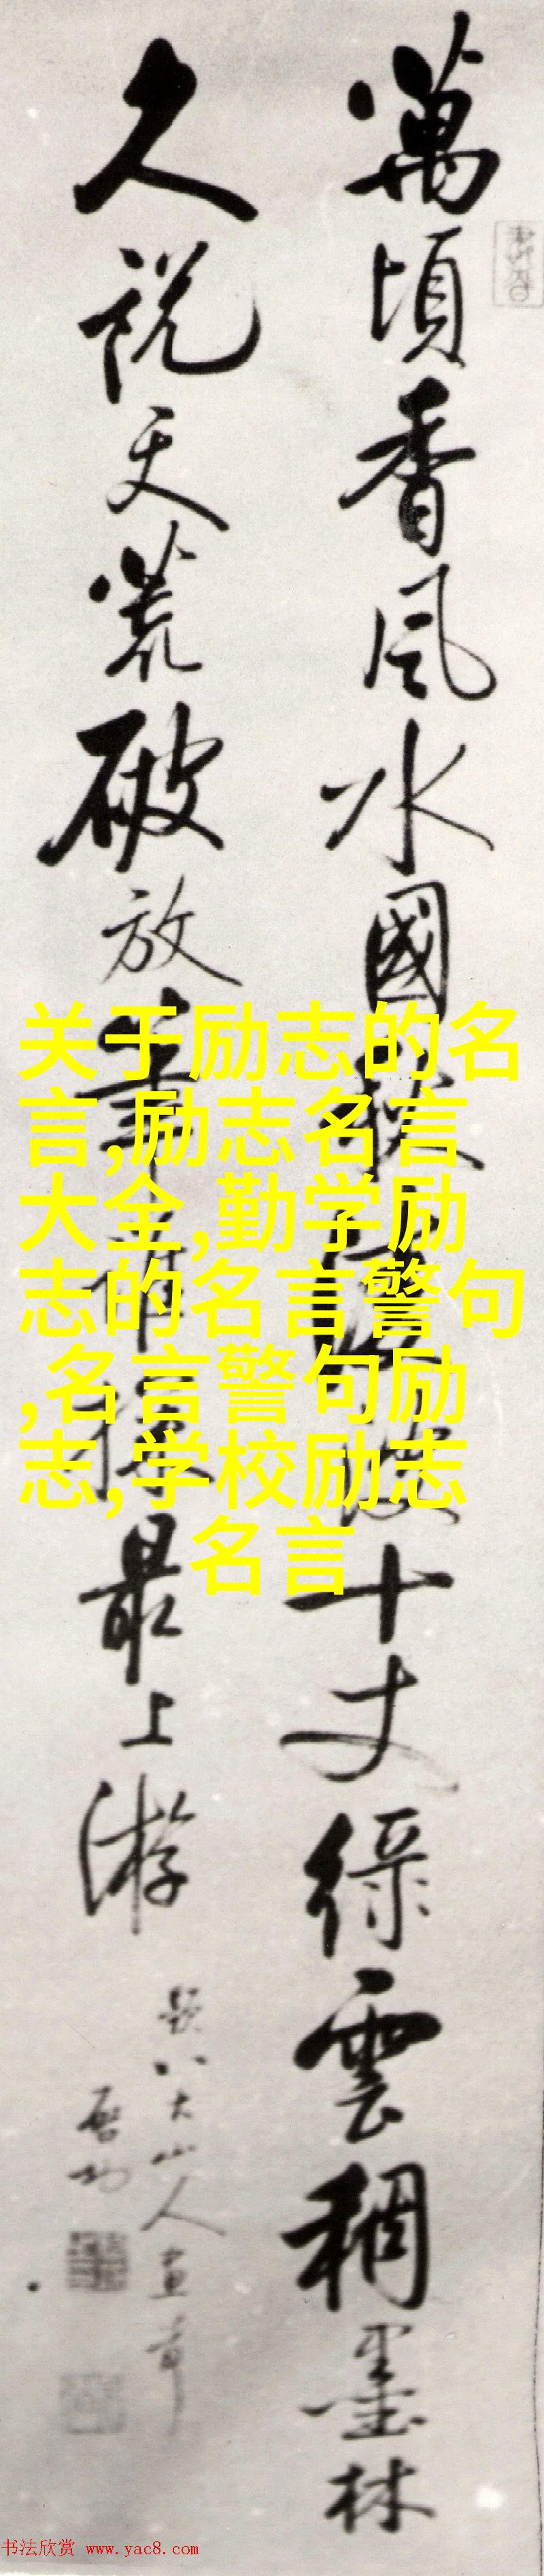 萬頃香風水國秋
十丈綠雲稠墨林
久說天荒破放筆
最上游
題八大山人畫
啓功
关于励志的名
言,励志名言
大全,勤学励
志的名言警句
,名言警句励
志,学校励志
名言
书法欣赏 www.yac8.com